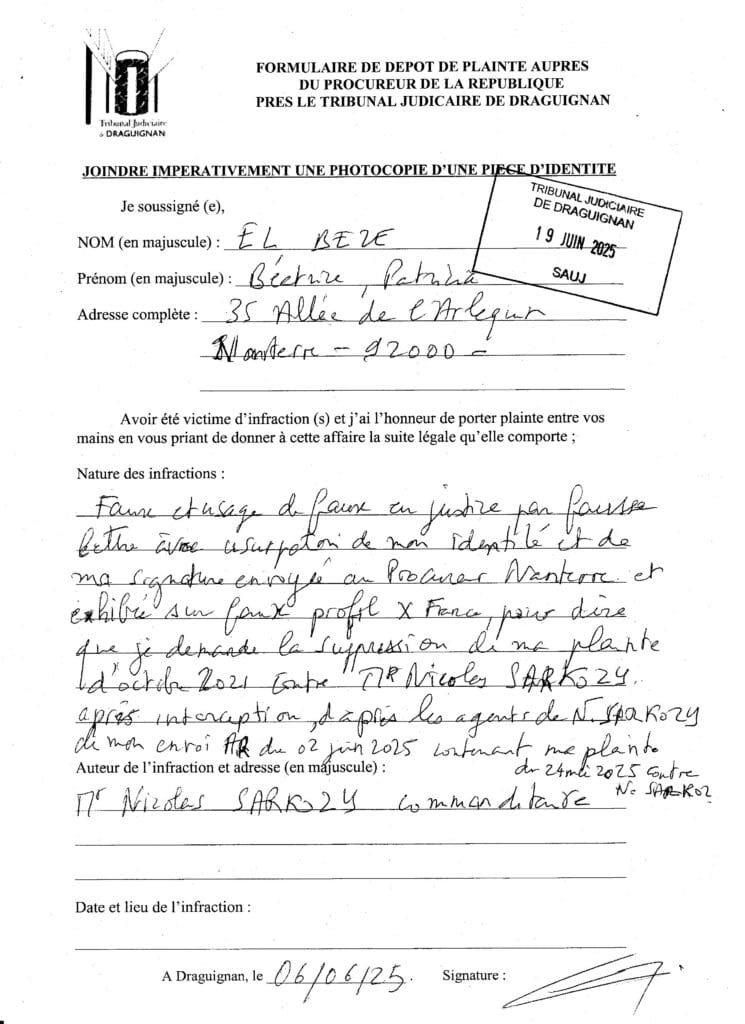 Tribunal Judiciaire
de DRAGUIGNAN
FORMULAIRE DE DEPOT DE PLAINTE AUPRES
DU PROCUREUR DE LA REPUBLIQUE
PRES LE TRIBUNAL JUDICAIRE DE DRAGUIGNAN
JOINDRE IMPERATIVEMENT UNE PHOTOCOPIE D'UNE PIECE D'IDENTITE
TRIBUNAL JUDICIAIRE
DE DRAGUIGNAN
19 JUIN 2025
SAUJ
Je soussigné (e),
NOM (en majuscule) : EL BEZE
Prénom (en majuscule) : Béatrice, Patricia
Adresse complète : 35 Allée de l'Arlequin
Nanterre - 92000 -
Avoir été victime d'infraction (s) et j'ai l'honneur de porter plainte entre vos
mains en vous priant de donner à cette affaire la suite légale qu'elle comporte ;
Nature des infractions :
Faux et usage de faux en justice par fausse
lettre avec usurpation de mon identité et de
ma signature envoyée au Procureur Nanterre et
exhibée sur faux profil X France, pour dire
que je demande la suppression de ma plainte
d'octobre 2021 contre Mr Nicolas SARKOZY.
après interception, d'après les agents de N. SARKOZY
de mon envoi AR du 02 juin 2025 contenant ma plainte
du 24 mai 2025 contre
N. SARKOZ
Auteur de l'infraction et adresse (en majuscule) :
Mr Nicolas SARKOZY commanditaire
Date et lieu de l'infraction :
A Draguignan, le 06/06/25. Signature :